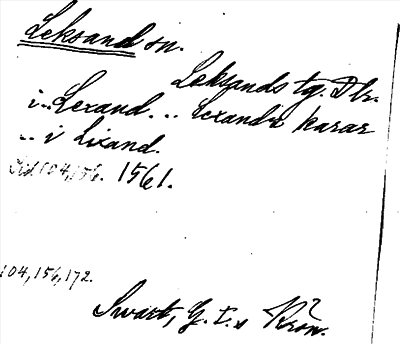 Leksand sn.
Leksands tg. Dlr.
i.. Lexand. .. Lexande karar
.. i Lixand.
Sid 104,156. 1561.
104,156,172.
Swart, G. I:s Krön.